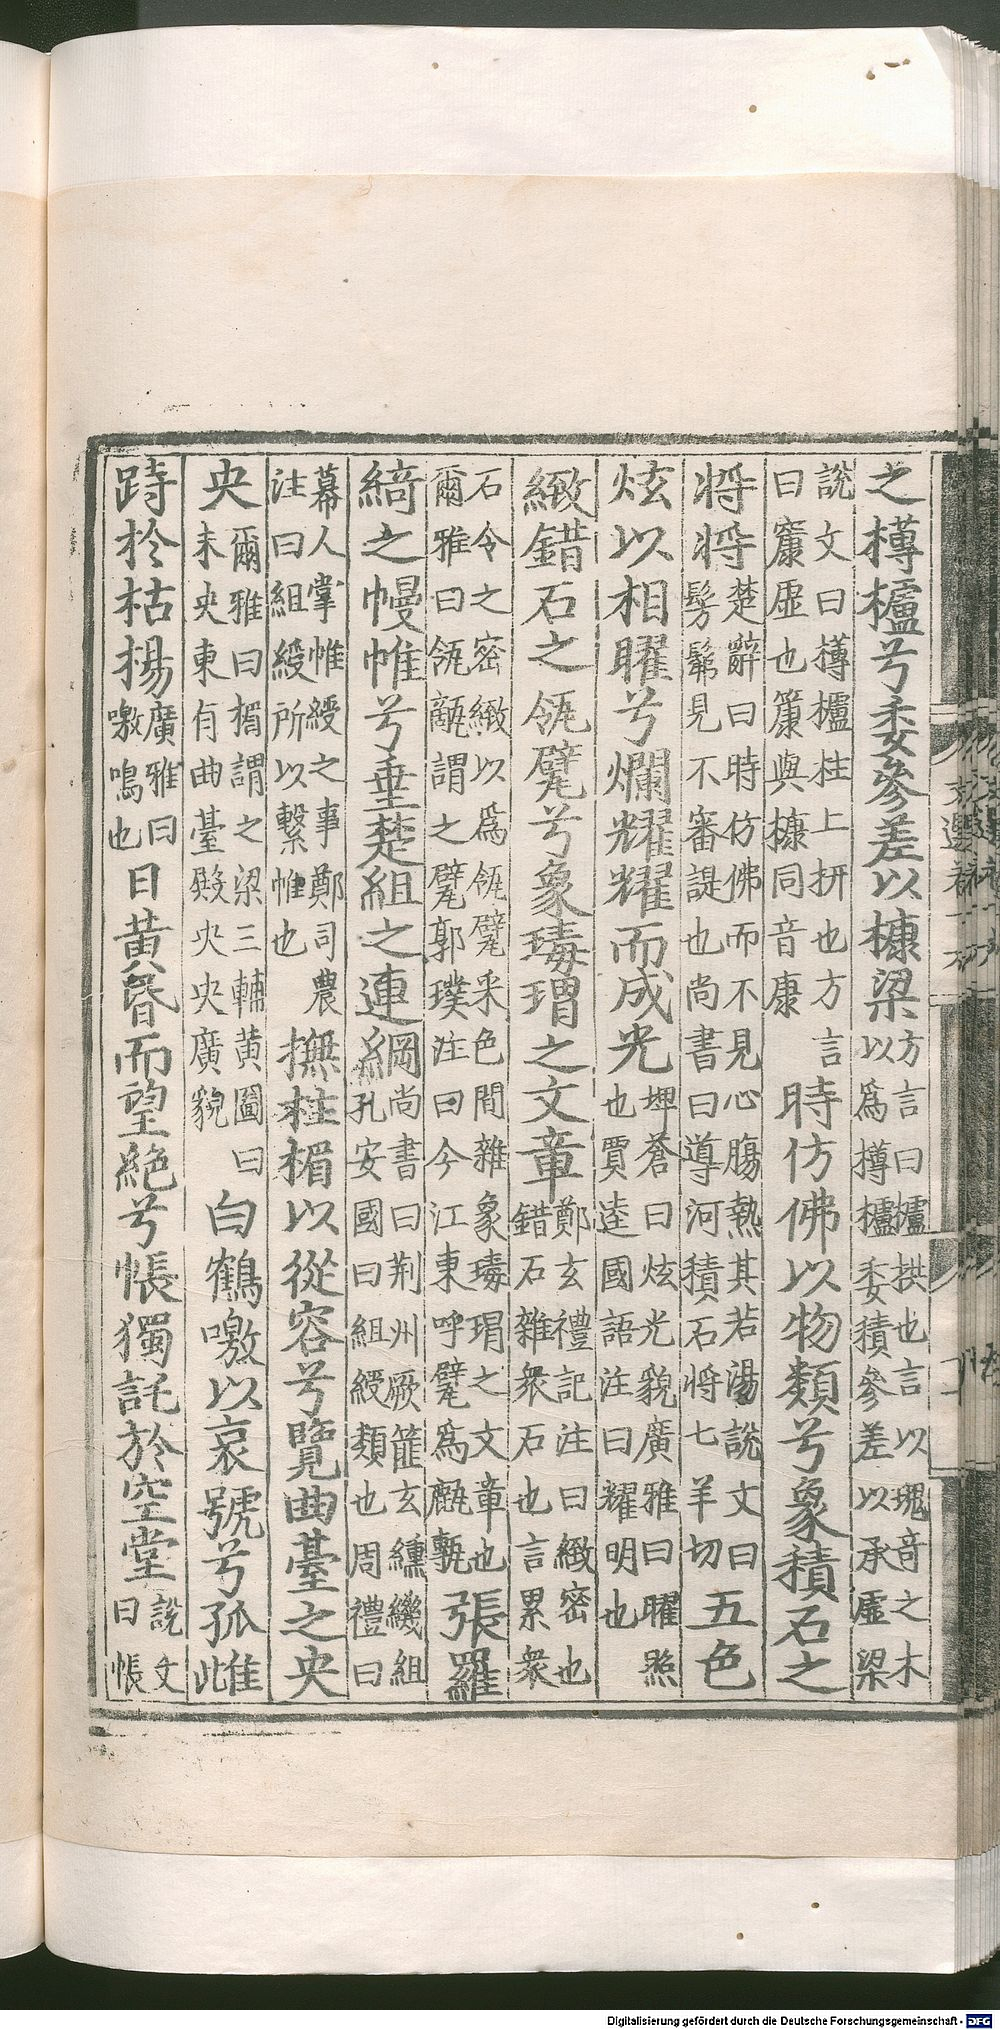 之欂櫨兮委參差以槺梁方言曰櫨拱也言以瑰音之木以爲欂櫨委積參差以承虛梁
説文曰欂櫨柱上枅也方言曰穅虛也簾與槺同音康時仿佛以物類兮象積石之
將將楚辭曰時仿佛而不見心腸熱其若湯説文曰髣髴見不審諟也尚書曰導河積石將七羊切五色
炫以相曜兮爛耀耀而成光埤蒼曰炫光貌廣雅曰曜照也賈逵國語注曰耀明也
緻錯石之瓴甓兮象瑇瑁之文章鄭玄禮記注曰緻密也錯石雜衆石也言累衆
石令之密緻以爲瓴甓采色間雜象瑇瑁之文章也爾雅曰瓴甋謂之甓郭璞注曰今江東呼甓爲甎張羅
綺之幔帷兮垂楚組之連綱尚書曰荆州厥篚玄纁璣組孔安國曰組綬類也周禮曰
幕人掌帷綬之事鄭司農注曰組綬所以繫帷也撫柱楣以從容兮覽曲臺之央
央爾雅曰楣謂之梁三輔黄圖曰未央東有曲臺殿央央廣貌白鶴噭以哀號兮孤雌
跱於枯楊廣雅曰噭鳴也日黄昏而望絶兮悵獨託於空堂説文曰悵
Digitalisierung gefördert durch die Deutsche Forschungsgemeinschaft - DFG